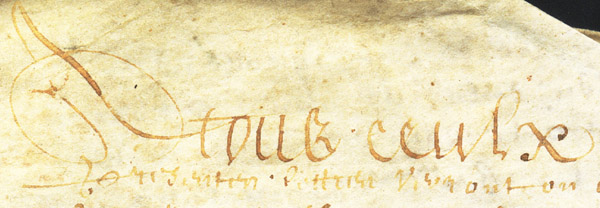 A tous ceulx
presentes lettres verront ou